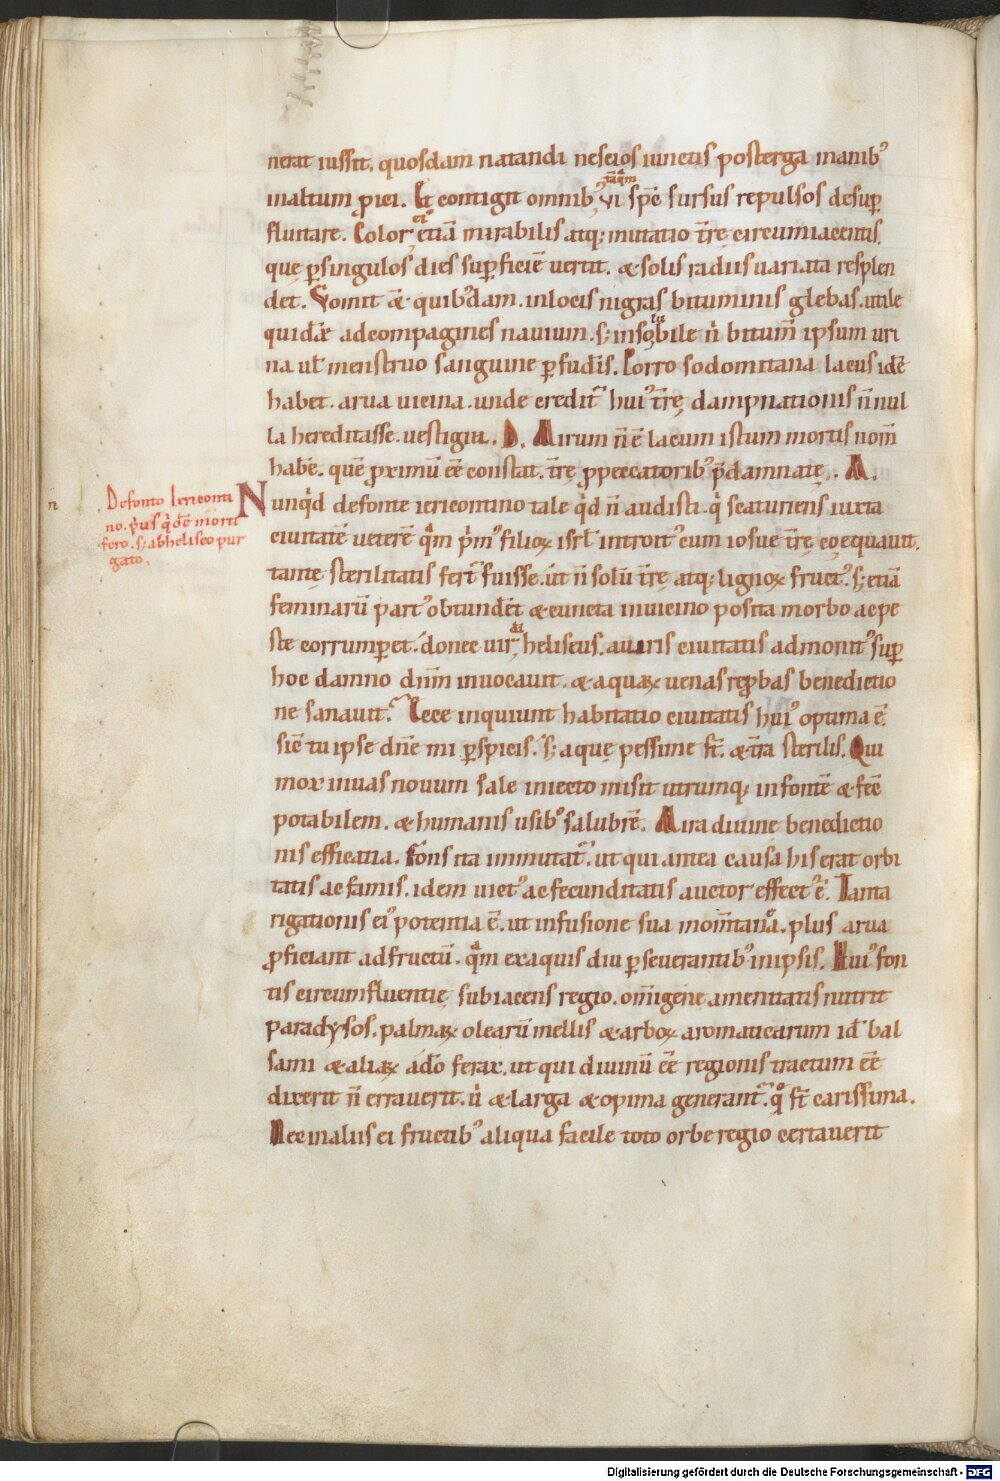 nerat iussit. quosdam natandi nescios iunctis posterga manibꝰ
inaltum ꝓici. Et contigit omnibꝰ tāqᵃm vi spē sursus repulsos desuꝑ
fluitare. Color eiꝰ etiā mirabilis atqꝫ mutatio t̄rę circumiacentis.
quę ꝑsingulos dies suꝑficiē vertit. & solis radiis uariata resplen
det. Vomit ā& quibꝰdam. inlocis nigras bituminis glebas. utile
quidē adcompagines navium. sꝫ insolubile ñ bitum̄ ipsum uri
na ul menstruo sanguine ꝑfudis. Porro sodomitana lacus idē
habet. arua uicina. unde creditᷣ huiꝰ t̄rę dampnationis ñ nul
la hereditasse. vestigia. D. Mirum ñ ē lacum istum mortis nom̄
habē. quē proximū eē constat. t̄rę ꝓpeccatoribꝰ p̄damnatę. M.
Nunqͥd defonte iericontino tale qͥd ñ audisti. qͥ scaturiens iuxta
ciuitatē veterē qᵃm pͥmꝰ filioꝝ isrl introitꝰ cum iosue t̄rę coequauit.
De fonte Iericonti
no. pͥus qͥdē morti
fero. sꝫ abheliseo pur
gato.
tantę sterilitatis fertᷣ fuisse. ut ñ solū t̄rę atqꝫ lignoꝝ fructꝰ. sꝫ etiā
feminarū partꝰ obtunder̄& & cuncta inuicino posita morbo acpe
ste corrumꝑet. donec uir di heliseus. auaris ciuitatis admonitꝰ suꝑ
hoc damno dn̄m inuocauit. & aquaꝝ uenas reꝓbas benedictio
ne sanauit. Ecce inquiunt habitatio ciuitatis huiꝰ optima ē.
sic̄ tu ipse dn̄e mi ꝑspicis. sꝫ aquę pessime st̄. & t̄ra sterilis. Qui
mox inuas novum sale iniecto misit utrumqꝫ infontē & fec̄
potabilem. & humanis usibꝰ salubrē. Mira diuinę benedictio
nis efficatia. Fons ita immutatᷣ. ut qui antea causa his erat orbi
tatis ac famis. idem uictꝰ ac fecunditatis auctor effectꝰ ē. Tanta
rigationis eiꝰ potentia ē. ut infusione sua mom̄tanea. plus arua
ꝓficiant adfructū. qᵃm exaquis diu ꝑseverantibꝰ inipsis. Huiꝰ fon
tis circumfluentię subiacens regio. om̄igenę amenitatis nutrit
paradysos. palmaꝝ olearū mellis & arboꝝ aromaticarum id bal
sami & aliaꝝ adō ferax. ut qui diuinū eē regionis tractum eē
dixerit ñ errauerit. ñ & larga & opima generantᷣ. qͦ st̄ carissima.
Nec inaliis ei fructibꝰ aliqua facile toto orbe regio certauerit
Digitalisierung gefördert durch die Deutsche Forschungsgemeinschaft - DFG